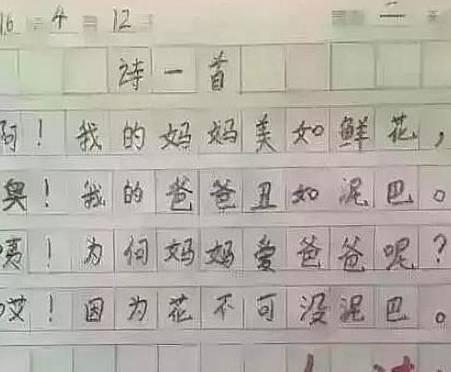 16 4 12 二
诗一首
啊！我的妈妈美如鲜花，
奥！我的爸爸丑如泥巴。
咦！为何妈妈爱爸爸呢？
哎！因为花不可没泥巴。